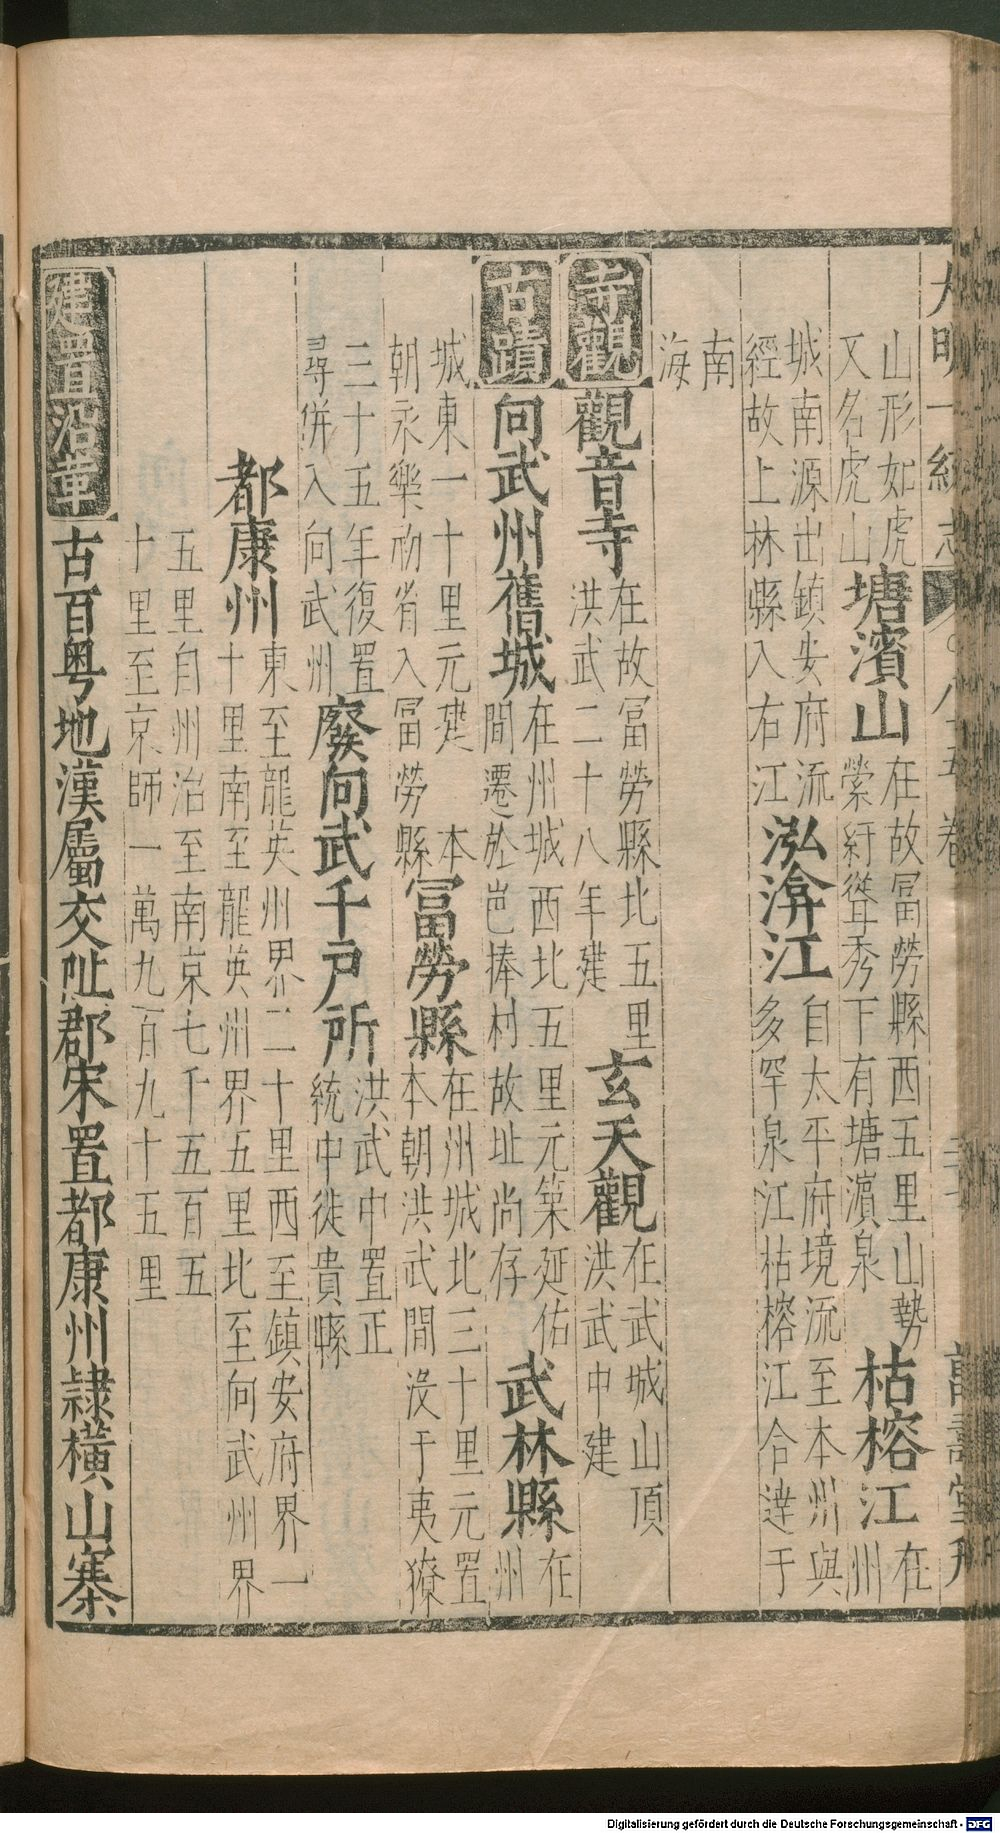 大明一統志 八十五卷 萬壽堂刋
山形如虎又名虎山塘濱山在故冨勞縣西五里山勢縈紆聳秀下有塘濵泉枯榕江在州
城南源出鎮安府流經故上林縣入右江泓渰江自太平府境流至本州與多罕泉江枯榕江合達于
南海
寺觀觀音寺在故冨勞縣北五里洪武二十八年建玄天觀在武城山頂洪武中建
古蹟向武州舊城在州城西北五里元築延佑間遷於邕捧村故址尚存武林縣在州
城東一十里元建本朝永樂初省入冨勞縣冨勞縣在州城北三十里元置本朝洪武間没于夷獠
三十五年復置尋併入向武州廢向武千戶所洪武中置正統中徙貴縣
都康州東至龍英州界二十里西至鎮安府界一十里南至龍英州界五里北至向武州界
五里自州治至南京七千五百五十里至京師一萬九百九十五里
建置沿革古百粤地漢屬交阯郡宋置都康州隷橫山寨
Digitalisierung gefördert durch die Deutsche Forschungsgemeinschaft - DFG